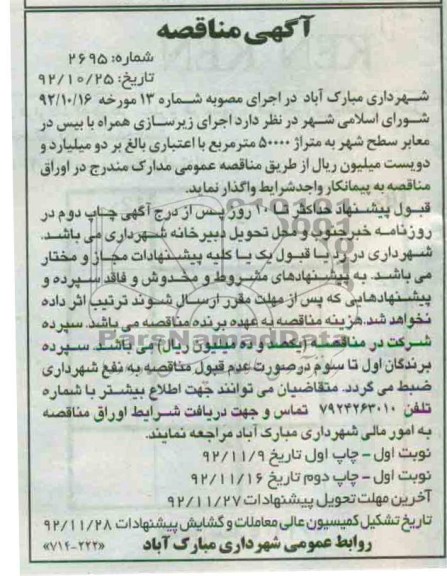 آگهی مناقصه
شماره: ۲۶۹۵
تاریخ: ۹۲/۱۰/۲۵
شهرداری مبارک آباد در اجرای مصوبه شماره ۱۳ مورخه ۹۲/۱۰/۱۶
شورای اسلامی شهر در نظر دارد اجرای زیرسازی همراه با بیس در
معابر سطح شهر به متراژ ۵۰۰۰۰ مترمربع با اعتباری بالغ بر دو میلیارد و
دویست میلیون ریال از طریق مناقصه عمومی مدارک مندرج در اوراق
مناقصه به پیمانکار واجدشرایط واگذار نماید.
قبول پیشنهاد حداکثر تا ۱۰ روز پس از درج آگهی چاپ دوم در
روزنامه خبرجنوب و محل تحویل دبیرخانه شهرداری می باشد.
شهرداری در رد یا قبول یک یا کلیه پیشنهادات مجاز و مختار
می باشد. به پیشنهادهای مشروط و مخدوش و فاقد سپرده و
پیشنهادهایی که پس از مهلت مقرر ارسال شوند ترتیب اثر داده
نخواهد شد. هزینه مناقصه به عهده برنده مناقصه می باشد. سپرده
شرکت در مناقصه (یکصد و ده میلیون ریال) می باشد. سپرده
برندگان اول تا سوم درصورت عدم قبول مناقصه به نفع شهرداری
ضبط می گردد. متقاضیان می توانند جهت اطلاع بیشتر با شماره
تلفن ۷۹۲۴۲۶۳۰۱۰ تماس و جهت دریافت شرایط اوراق مناقصه
به امور مالی شهرداری مبارک آباد مراجعه نمایند.
نوبت اول - چاپ اول تاریخ ۹۲/۱۱/۹
نوبت اول - چاپ دوم تاریخ ۹۲/۱۱/۱۶
آخرین مهلت تحویل پیشنهادات ۹۲/۱۱/۲۷
تاریخ تشکیل کمیسیون عالی معاملات و گشایش پیشنهادات ۹۲/۱۱/۲۸
روابط عمومی شهرداری مبارک آباد
«۷۱۴-۲۲۲»